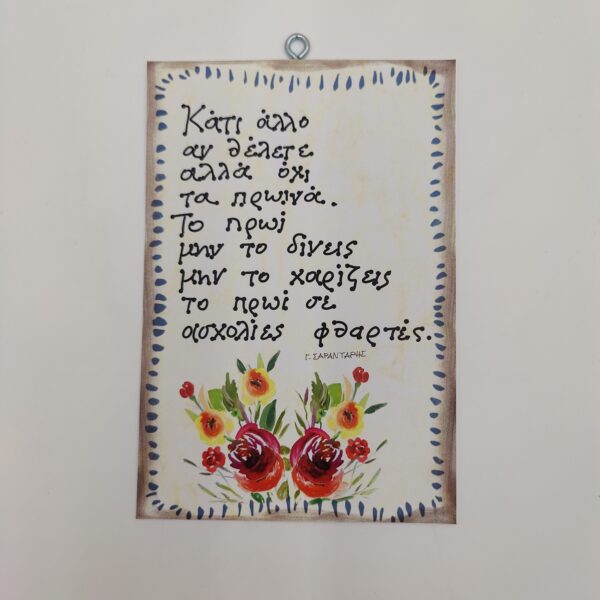 Κάτι άλλο
αν θέλετε
αλλά όχι
τα πρωινά.
Το πρωί
μην το δίνεις
μην το χαρίζεις
το πρωί σε
ασχολίες φθαρτές.
Γ. ΣΑΡΑΝΤΑΡΗΣ